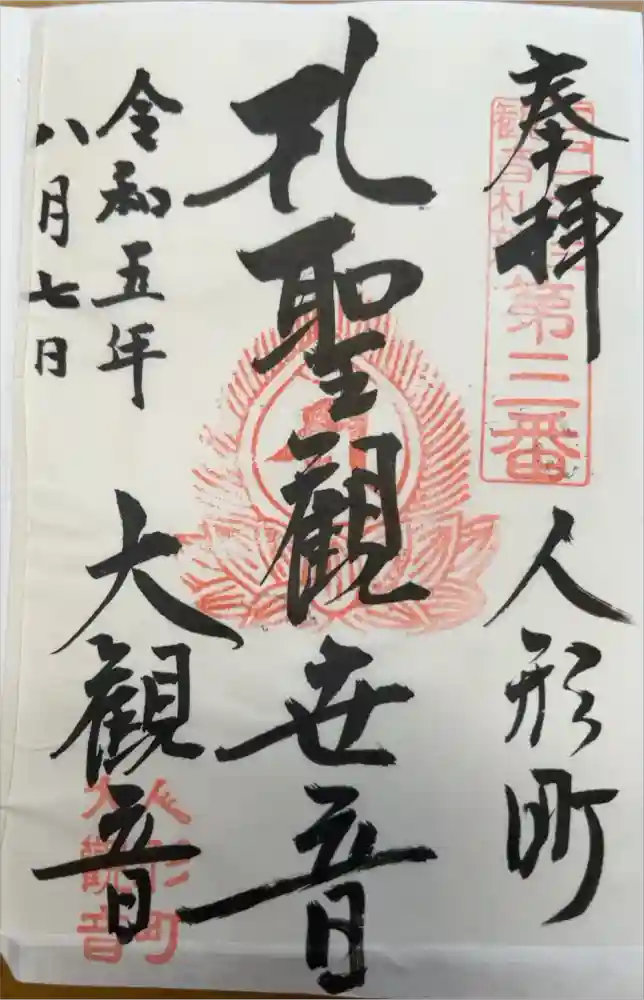 奉拝
觀音札所
第三番
人形町
孔聖觀世音
大觀音
令和五年
八月七日
人形町
大觀音